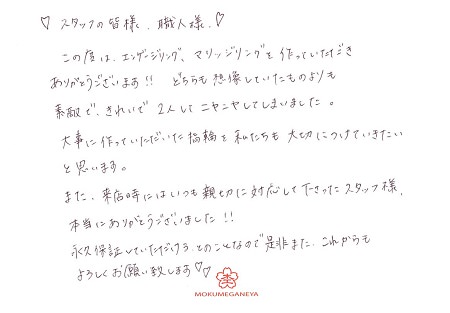 ♡ スタッフの皆様、職人様 ♡
この度は、エンゲージリング、マリッジリングを作っていただき
ありがとうございます!! どちらも想像していたものよりも
素敵で、きれいで2人してニヤニヤしてしまいました。
大事に作っていただいた指輪を私たちも大切につけていきたい
と思います。
また、来店時にはいつも親切に対応して下さったスタッフ様、
本当にありがとうございました!!
永久保証していただける、とのことなので是非また、これからも
よろしくお願い致します♡♡
MOKUMEGANEYA